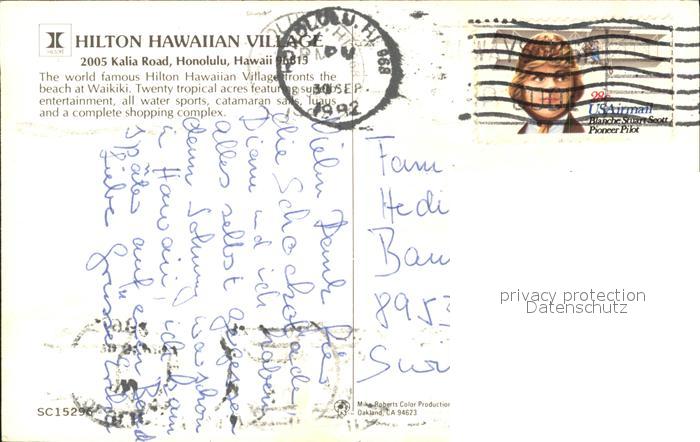 HILTON HAWAIIAN VILLAGE
2005 Kalia Road, Honolulu, Hawaii 96815
The world famous Hilton Hawaiian Village fronts the
beach at Waikiki. Twenty tropical acres featuring
entertainment, all water sports, catamaran sails, luaus
and a complete shopping complex.
HONOLULU, HI 968
PM
30 SEP
1992
28c
USAirmail
Blanche Stuart Scott
Pioneer Pilot
Vielen Dank für
die Schokolade
Diane und ich haben
alles selbst gegessen
denn Johnny war schon
in Hawaii, ich kam
später auf ein Bord
Liebe Grüsse
Fam.
Hedi
Bau
8953
privacy protection
Datenschutz
SC15296
Mike Roberts Color Production
Oakland, CA 94623